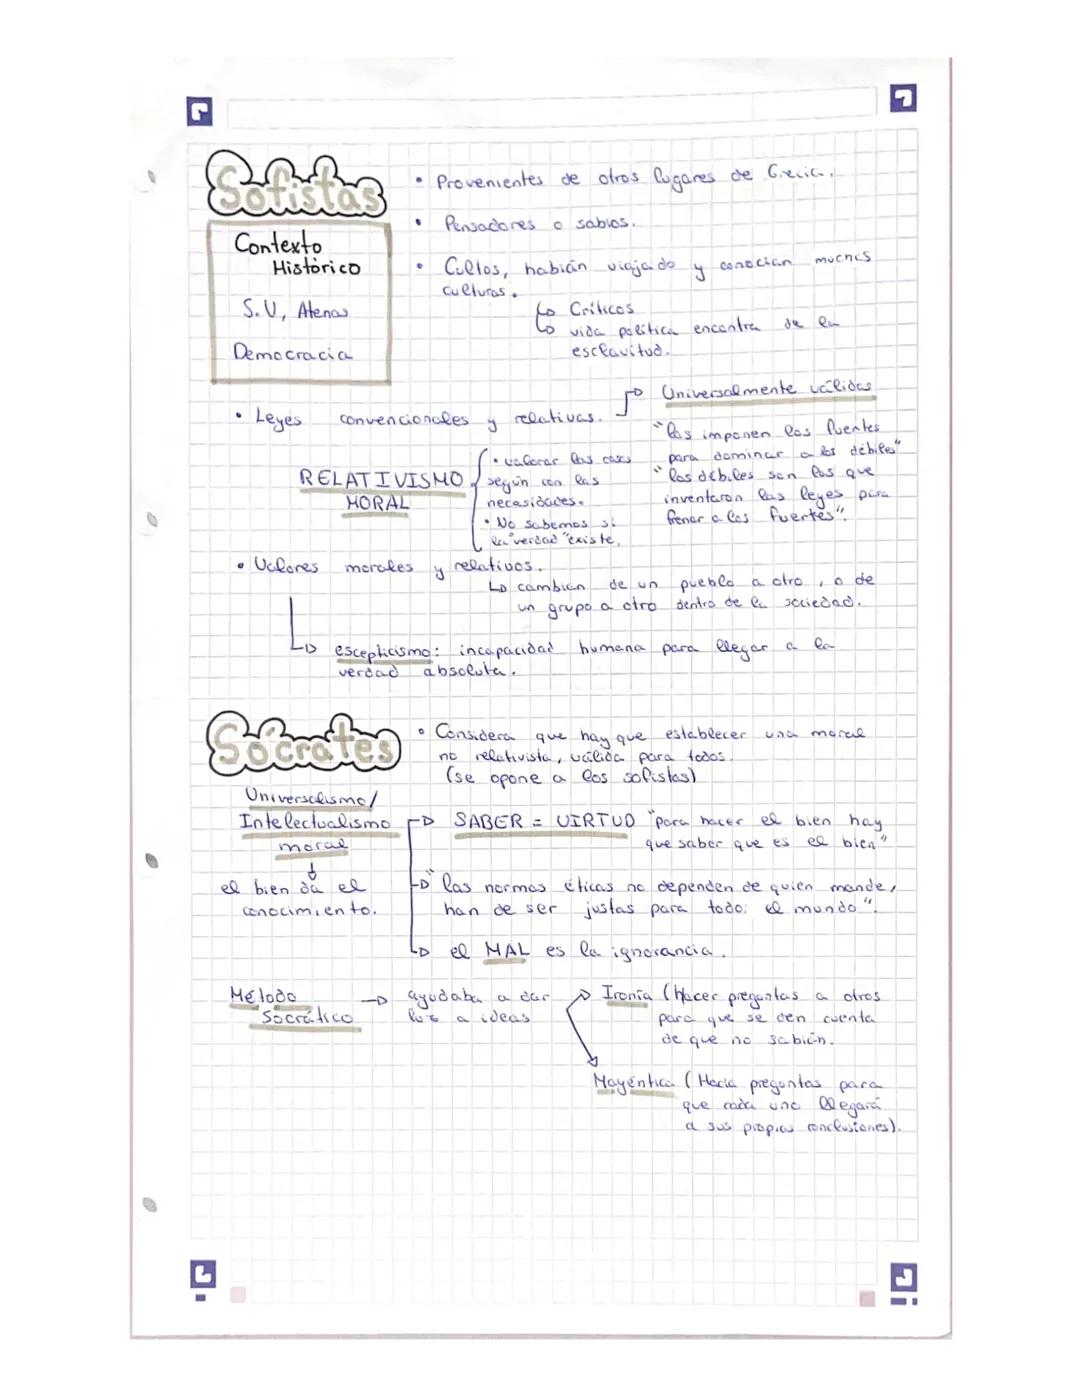 Sofistas
Contexto
Histórico
S.V, Atenas
Democracia
• Provenientes de otros lugares de Grecia.
• Pensadores o sabios.
• Cultos, habián viajado y conocian muchas
culturas.
↳ Críticos
↳ vida política encontra de la
esclavitud.
• Leyes convencionales y relativas.
→ Universalmente válidas
"las imponen los fuertes
para dominar a los débiles"
"los débiles son los que
inventaron las leyes para
frenar a los fuertes".
RELATIVISMO
MORAL
• valorar las cosas
según con las
necesidades.
• No sabemos si
la "verdad" existe.
• Valores morales y relativos.
↳ cambian de un pueblo a otro, o de
un grupo a otro dentro de la sociedad.
↳ escepticismo: incapacidad humana para llegar a la
verdad absoluta.
Sócrates
• Considera que hay que establecer una moral
no relativista, válida para todos.
(se opone a los sofistas)
Universalismo/
Intelectualismo
moral
↓
el bien da el
conocimiento.
→ SABER = VIRTUD "para hacer el bien hay
que saber que es el bien"
→ "las normas éticas no dependen de quien mande,
han de ser justas para todo el mundo".
→ el MAL es la ignorancia.
Método
Socrático
→ ayudaba a dar
luz a ideas
→ Ironía (Hacer preguntas a otros
para que se den cuenta
de que no sabián.
Mayéntica (Hacía preguntas para
que cada uno llegará
a sus propias conclusiones).